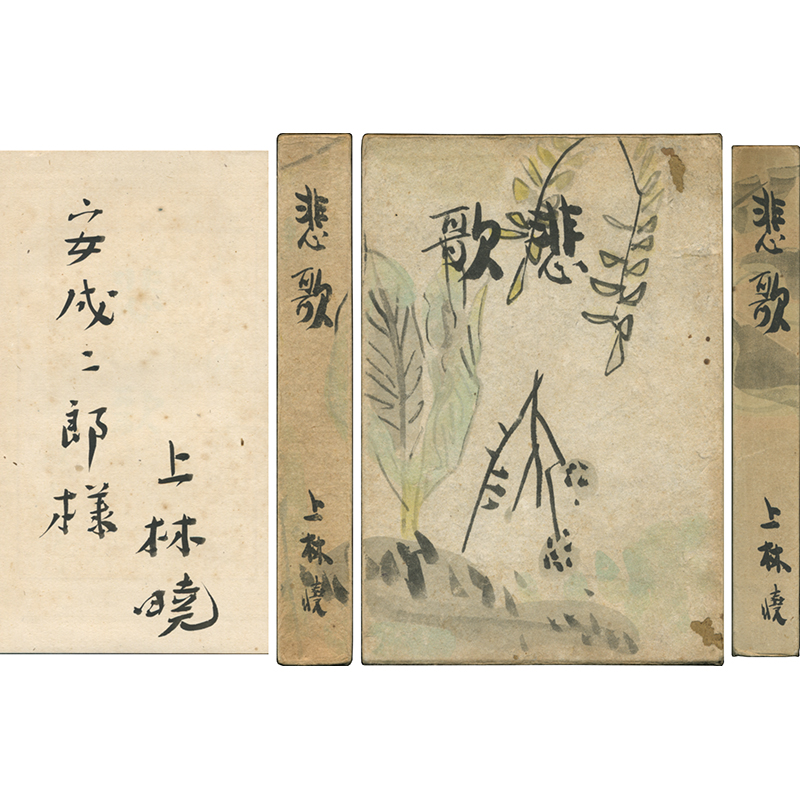 安成二郎様
上林曉
悲歌
上林曉
悲歌
悲歌
上林曉